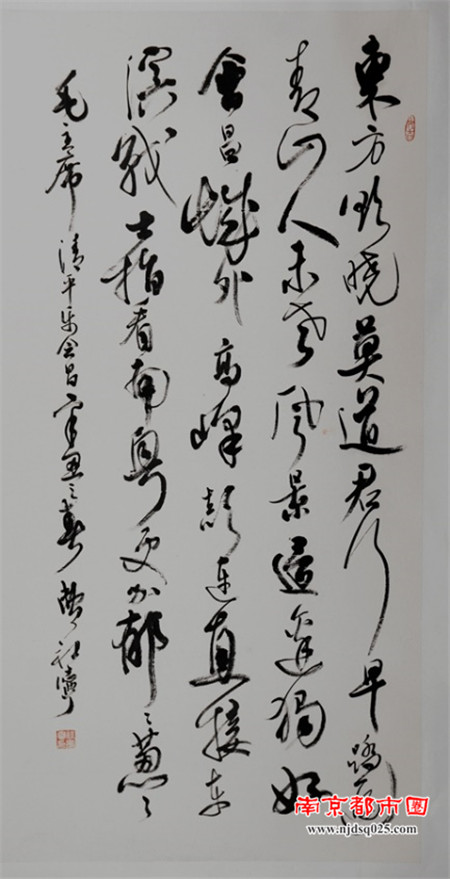 東方欲晓莫道君行早踏遍
青山人未老風景這边獨好
會昌城外高峰颠连直接东
溟戰士指看南粤更加郁々葱々
毛主席清平乐会昌
南京都市圈
www.njdsq025.com